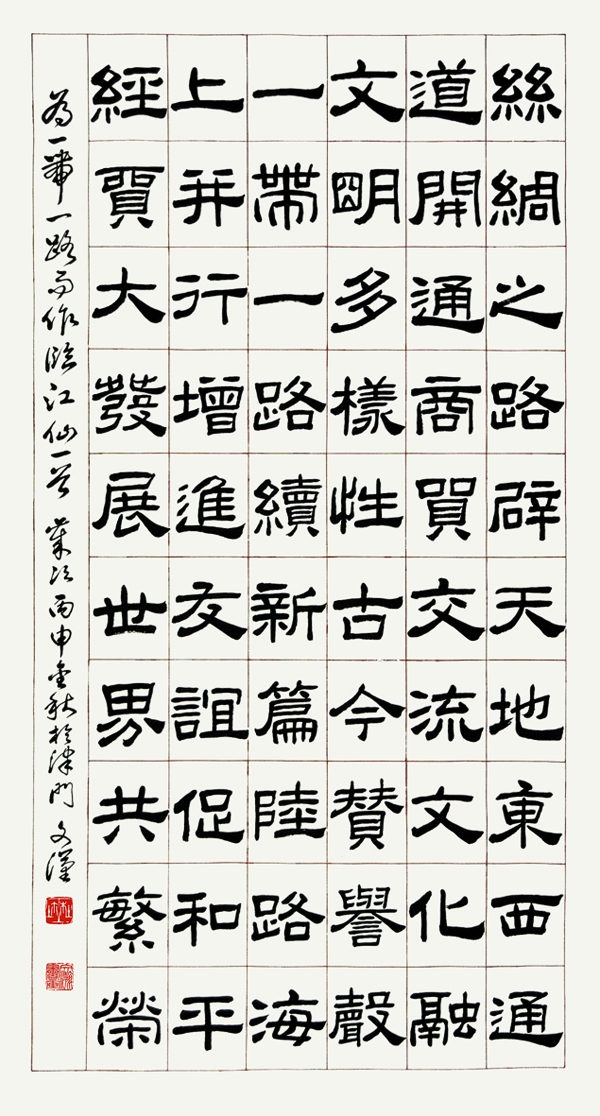 絲綢之路辟天地東西通
道開通商賈交流文化融
文明多樣性古今贊譽聲
一帶一路續新篇陸路海
上并行增進友誼促和平
經賈大發展世界共繁榮
為一帶一路而作臨江仙一首 歲次丙申金秋於津門 文漢